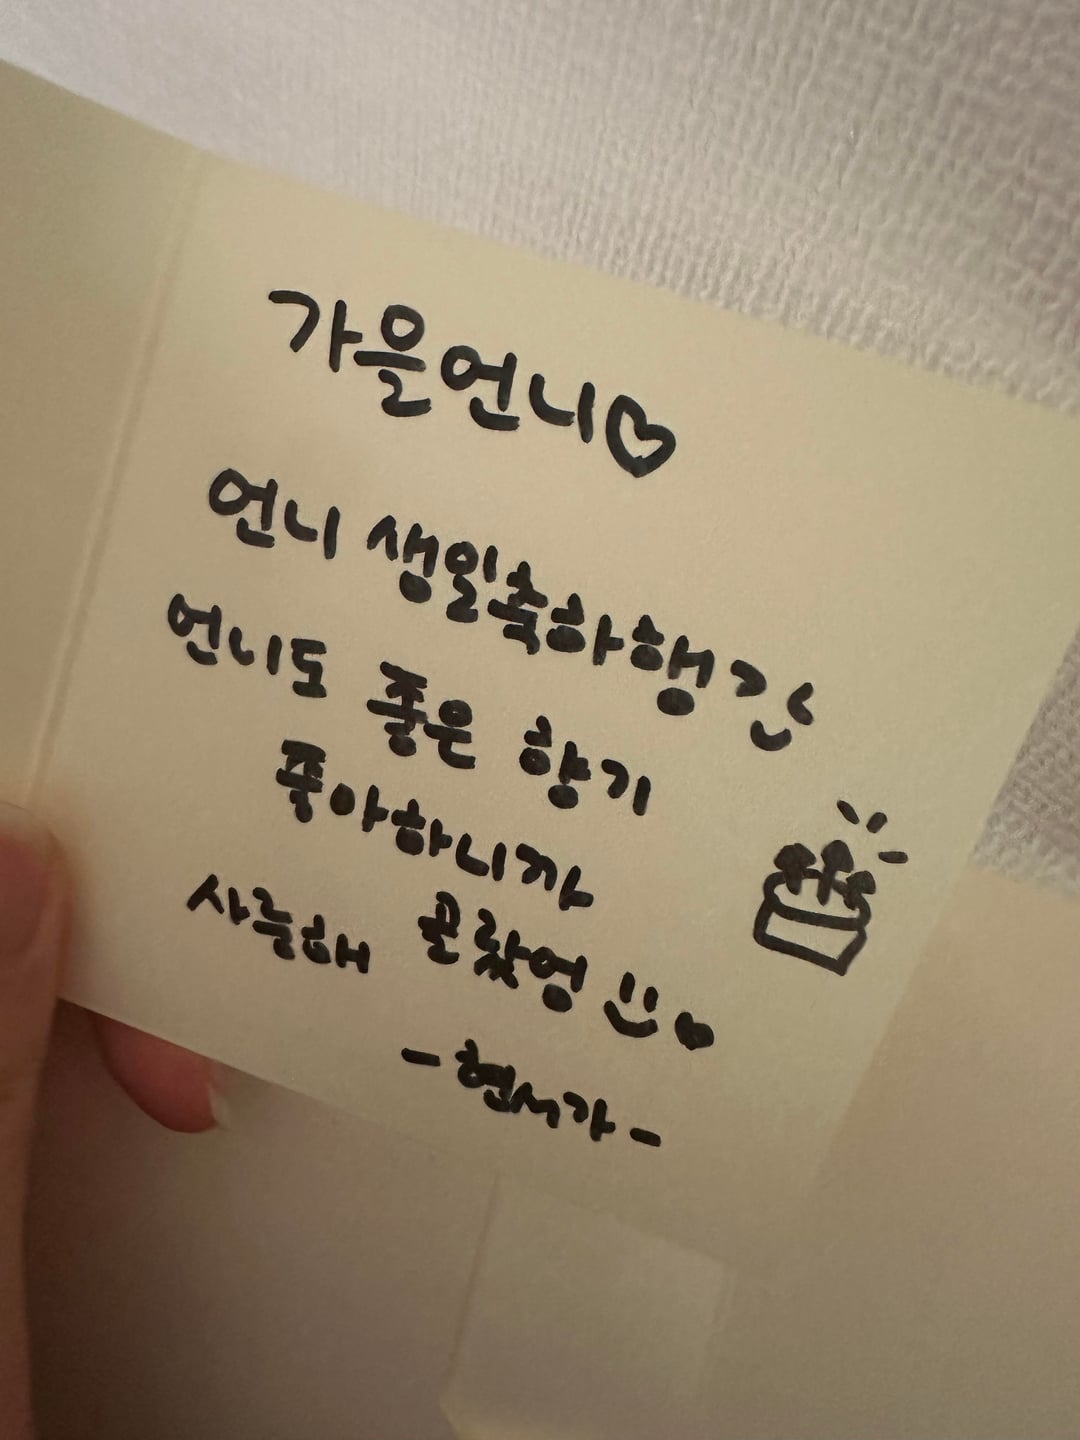 가을언니♡
언니 생일축하행
언니도 좋은 향기
좋아하니까
사릉해 골랐엉
-현서가-